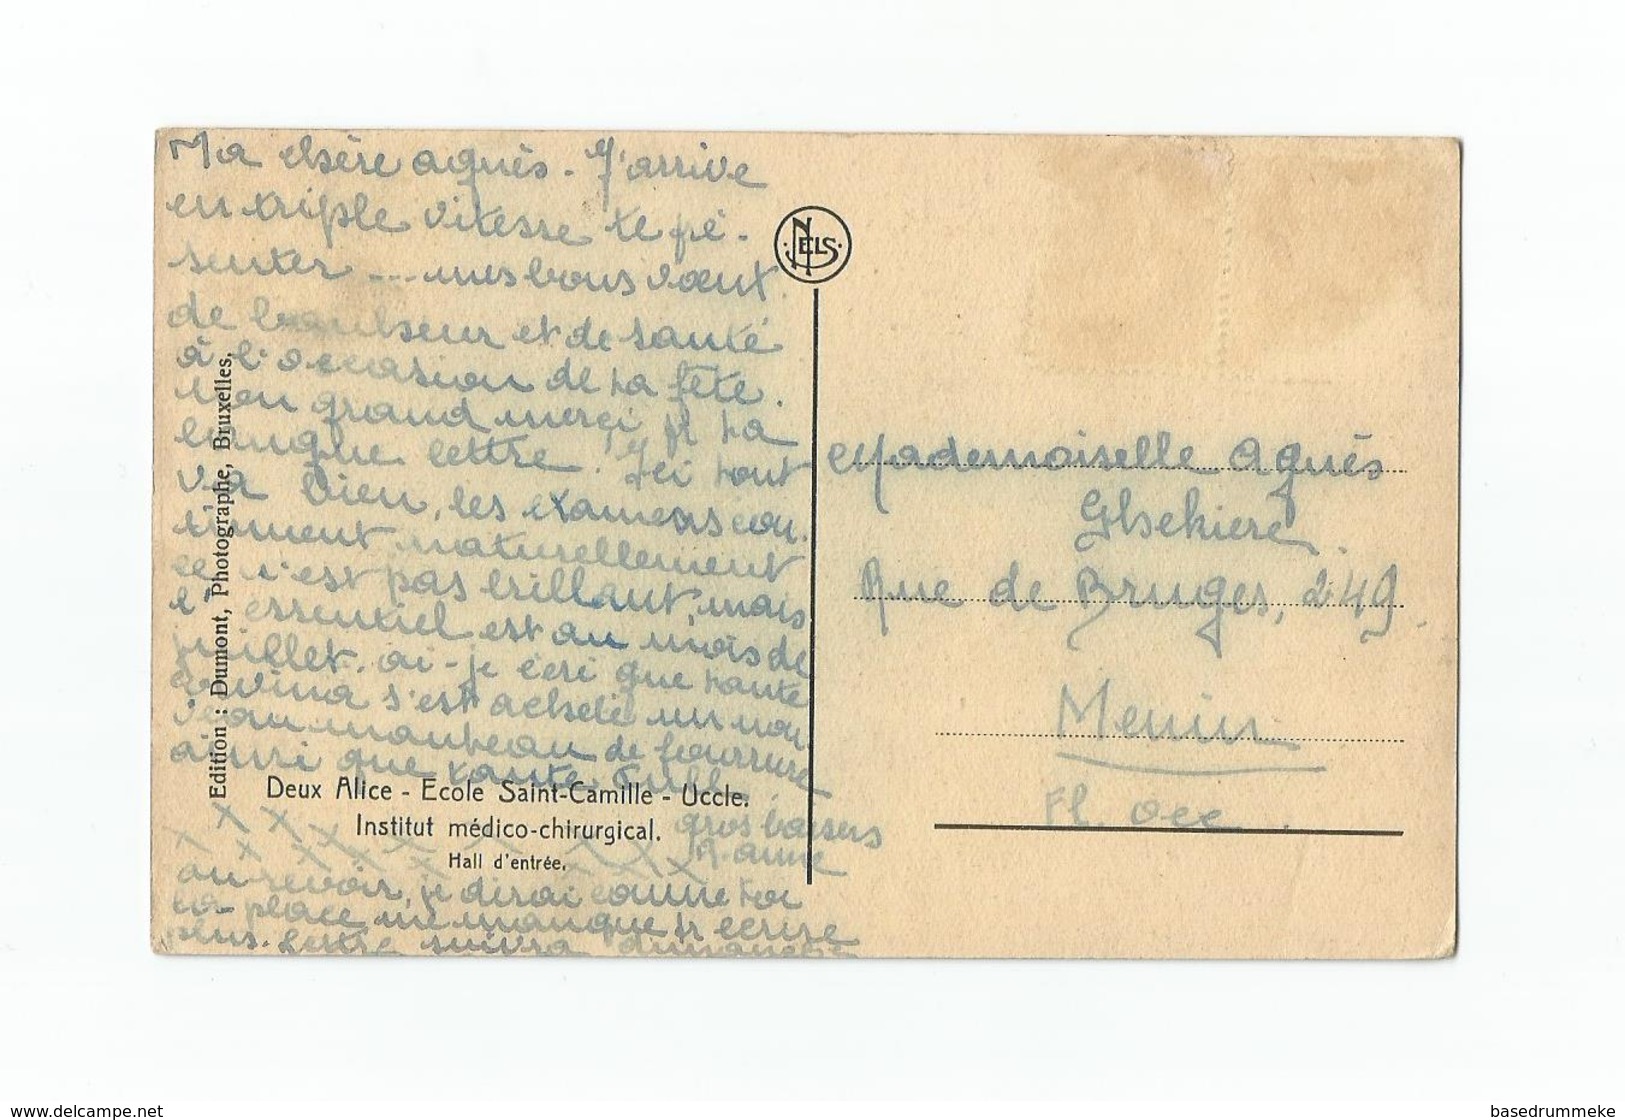 Ma chère agnès. J'arrive
en triple vitesse te pé-
senter --- mes bons vœux
de bonheur et de santé
à l'occasion de ta fête.
Mon grand merci pr ta
longue lettre. Ici tout
va bien, les examens con-
tinuent, naturellement
ce n'est pas brillant, mais
l'essentiel est au mois de
juillet. ai-je écri que tante
s'est acheté un nou-
veau manteau de fourrure
ainsi que tante
gros baisers
au revoir, je dirai comme toi
la place me manque pr écrire
plus. Lettre suivra dimanche
Edition : Dumont, Photographe, Bruxelles.
Deux Alice - Ecole Saint-Camille - Uccle.
Institut médico-chirurgical.
Hall d'entrée.
NELS
Mademoiselle Agnès
Ghekiere
Rue de Bruges, 249
Menin
Fl. occ.
www.delcampe.net
basedrummeke